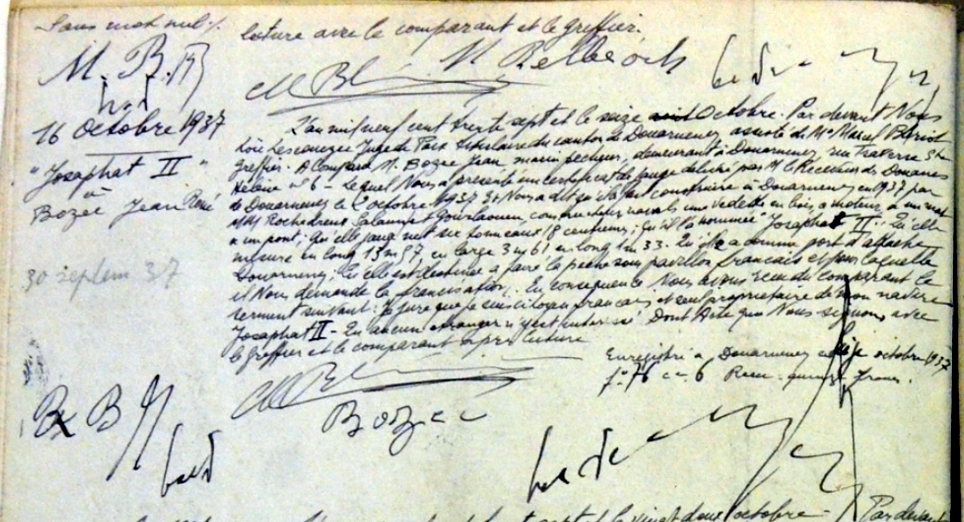 Sans mot nul %.
lecture avec le comparant et le greffier.
M. B.
M Belbeoch
16 Octobre 1937
"Josaphat II"
à
Bozec Jean René
30 septem 37
L'an mil neuf cent trente sept et le seize Octobre. Par devant Nous
Juge de Paix titulaire du canton de Douarnenez, assisté de Me Marcel
Greffier. A Comparu M. Bozec Jean, marin pêcheur, demeurant à Douarnenez, rue Traverse Ste
Hélène n° 6 - Lequel Nous a présenté un certificat de jauge délivré par M. le Receveur des Douanes
de Douarnenez le 2 octobre 1937 Et Nous a dit qu'il a fait construire à Douarnenez en 1937 par
MM Rochedreux Salaun et Gourlaouen constructeurs navals une vedette en bois, à moteur, à un mat
a un pont; qu'elle jauge net six tonneaux 18 centièmes; qu'il l'a nommée "Josaphat II". Qu'elle
mesure en long 13 m 97, en large 3 m 61 en long 1 m 33. Qu'elle a comme port d'attache
Douarnenez; qu'elle est destinée à faire la pêche sous pavillon français et pour laquelle
il Nous demande la francisation. En conséquence Nous avons reçu du comparant le
serment suivant: Je jure que je suis citoyen français et seul propriétaire de mon navire
Josaphat II - Qu'aucun étranger n'y est intéressé Dont Acte que Nous signons avec
le greffier et le comparant après lecture
Enregistré à Douarnenez octobre 1937
f° 76 c 6 Reçu quinze francs.
B
Bozec
sept et le vingt deux octobre - Par devant